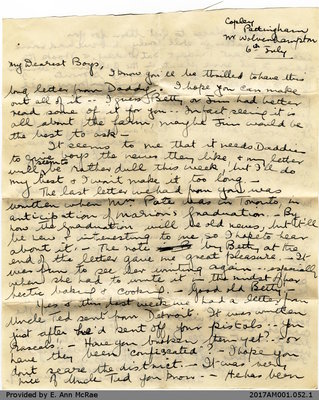 Copley
Pattingham
Nr Wolverhampton
6th July
My Dearest Boys,
I know you'll be thrilled to have this
long letter from Daddy. I hope you can make
out all of it. I guess Betty or Jim had better
read some of it for you. In fact seeing it is
all about the farm, maybe Jim would be
the best to ask -
It seems to me that it needs Daddies
to give boys the news they like, & my letter
will seem rather dull this week, but I'll do
my best & not make it too long -
The last letter we had from you was
written when Mrs Pate was in Toronto, in
anticipation of Marion's graduation. - By
now the graduation will be old news, but it'll
be new & interesting to me so I hope to hear
about it. The note by Betty at the
end of the letter gave me great pleasure. It
was fun to see her writing again - especially
when she had to write it in the midst of
hectic cooking - Good old Betty.
this last week we had a letter from
Uncle Ted sent from Detroit. It was written
just after he'd sent off your pistols. - You
Rascals. - Have you broken them yet? - or
have they been "confiscated"? - I hope you
don't scare the district. - It was very
nice of Uncle Ted you know. - He has been
Provided by E. Ann McRae
2017AM001.052.1